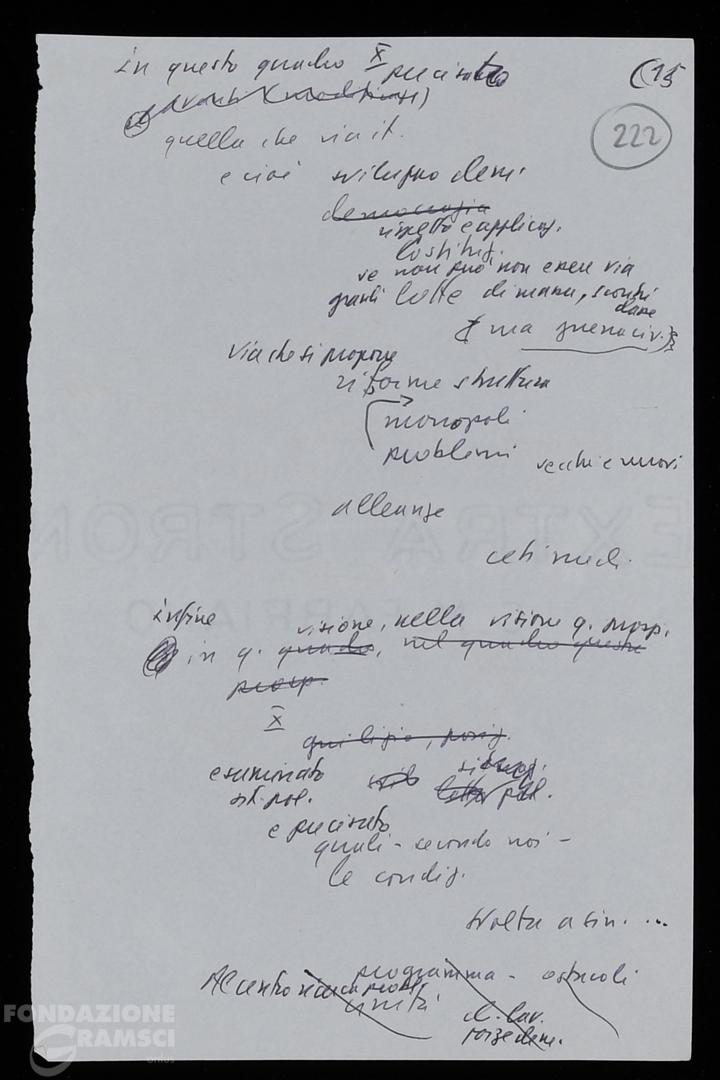 in questo quadro X precisato
(15
222
avanti (
quella che via it.
e cioè sviluppo dem.
democrazia
rispetto e applicaz.
Costituz.
se non può non essere via
grandi lotte di massa, scontri
ma guerra civ.
via che si propone
riforme struttura
monopoli
problemi vecchi e nuovi
alleanze
ceti medi.
infine
visione, nella visione q. prosp.
in q. quadro, nel quadro queste
prosp.
X
esaminato
sit. pol.
pol.
e precisato
quali - secondo noi -
le condiz.
svolta a sin. ...
programma - ostacoli
Al centro
unità
cl. lav.
forze dem.
FONDAZIONE
GRAMSCI
onlus
EXTRA STRONG
FABRIANO